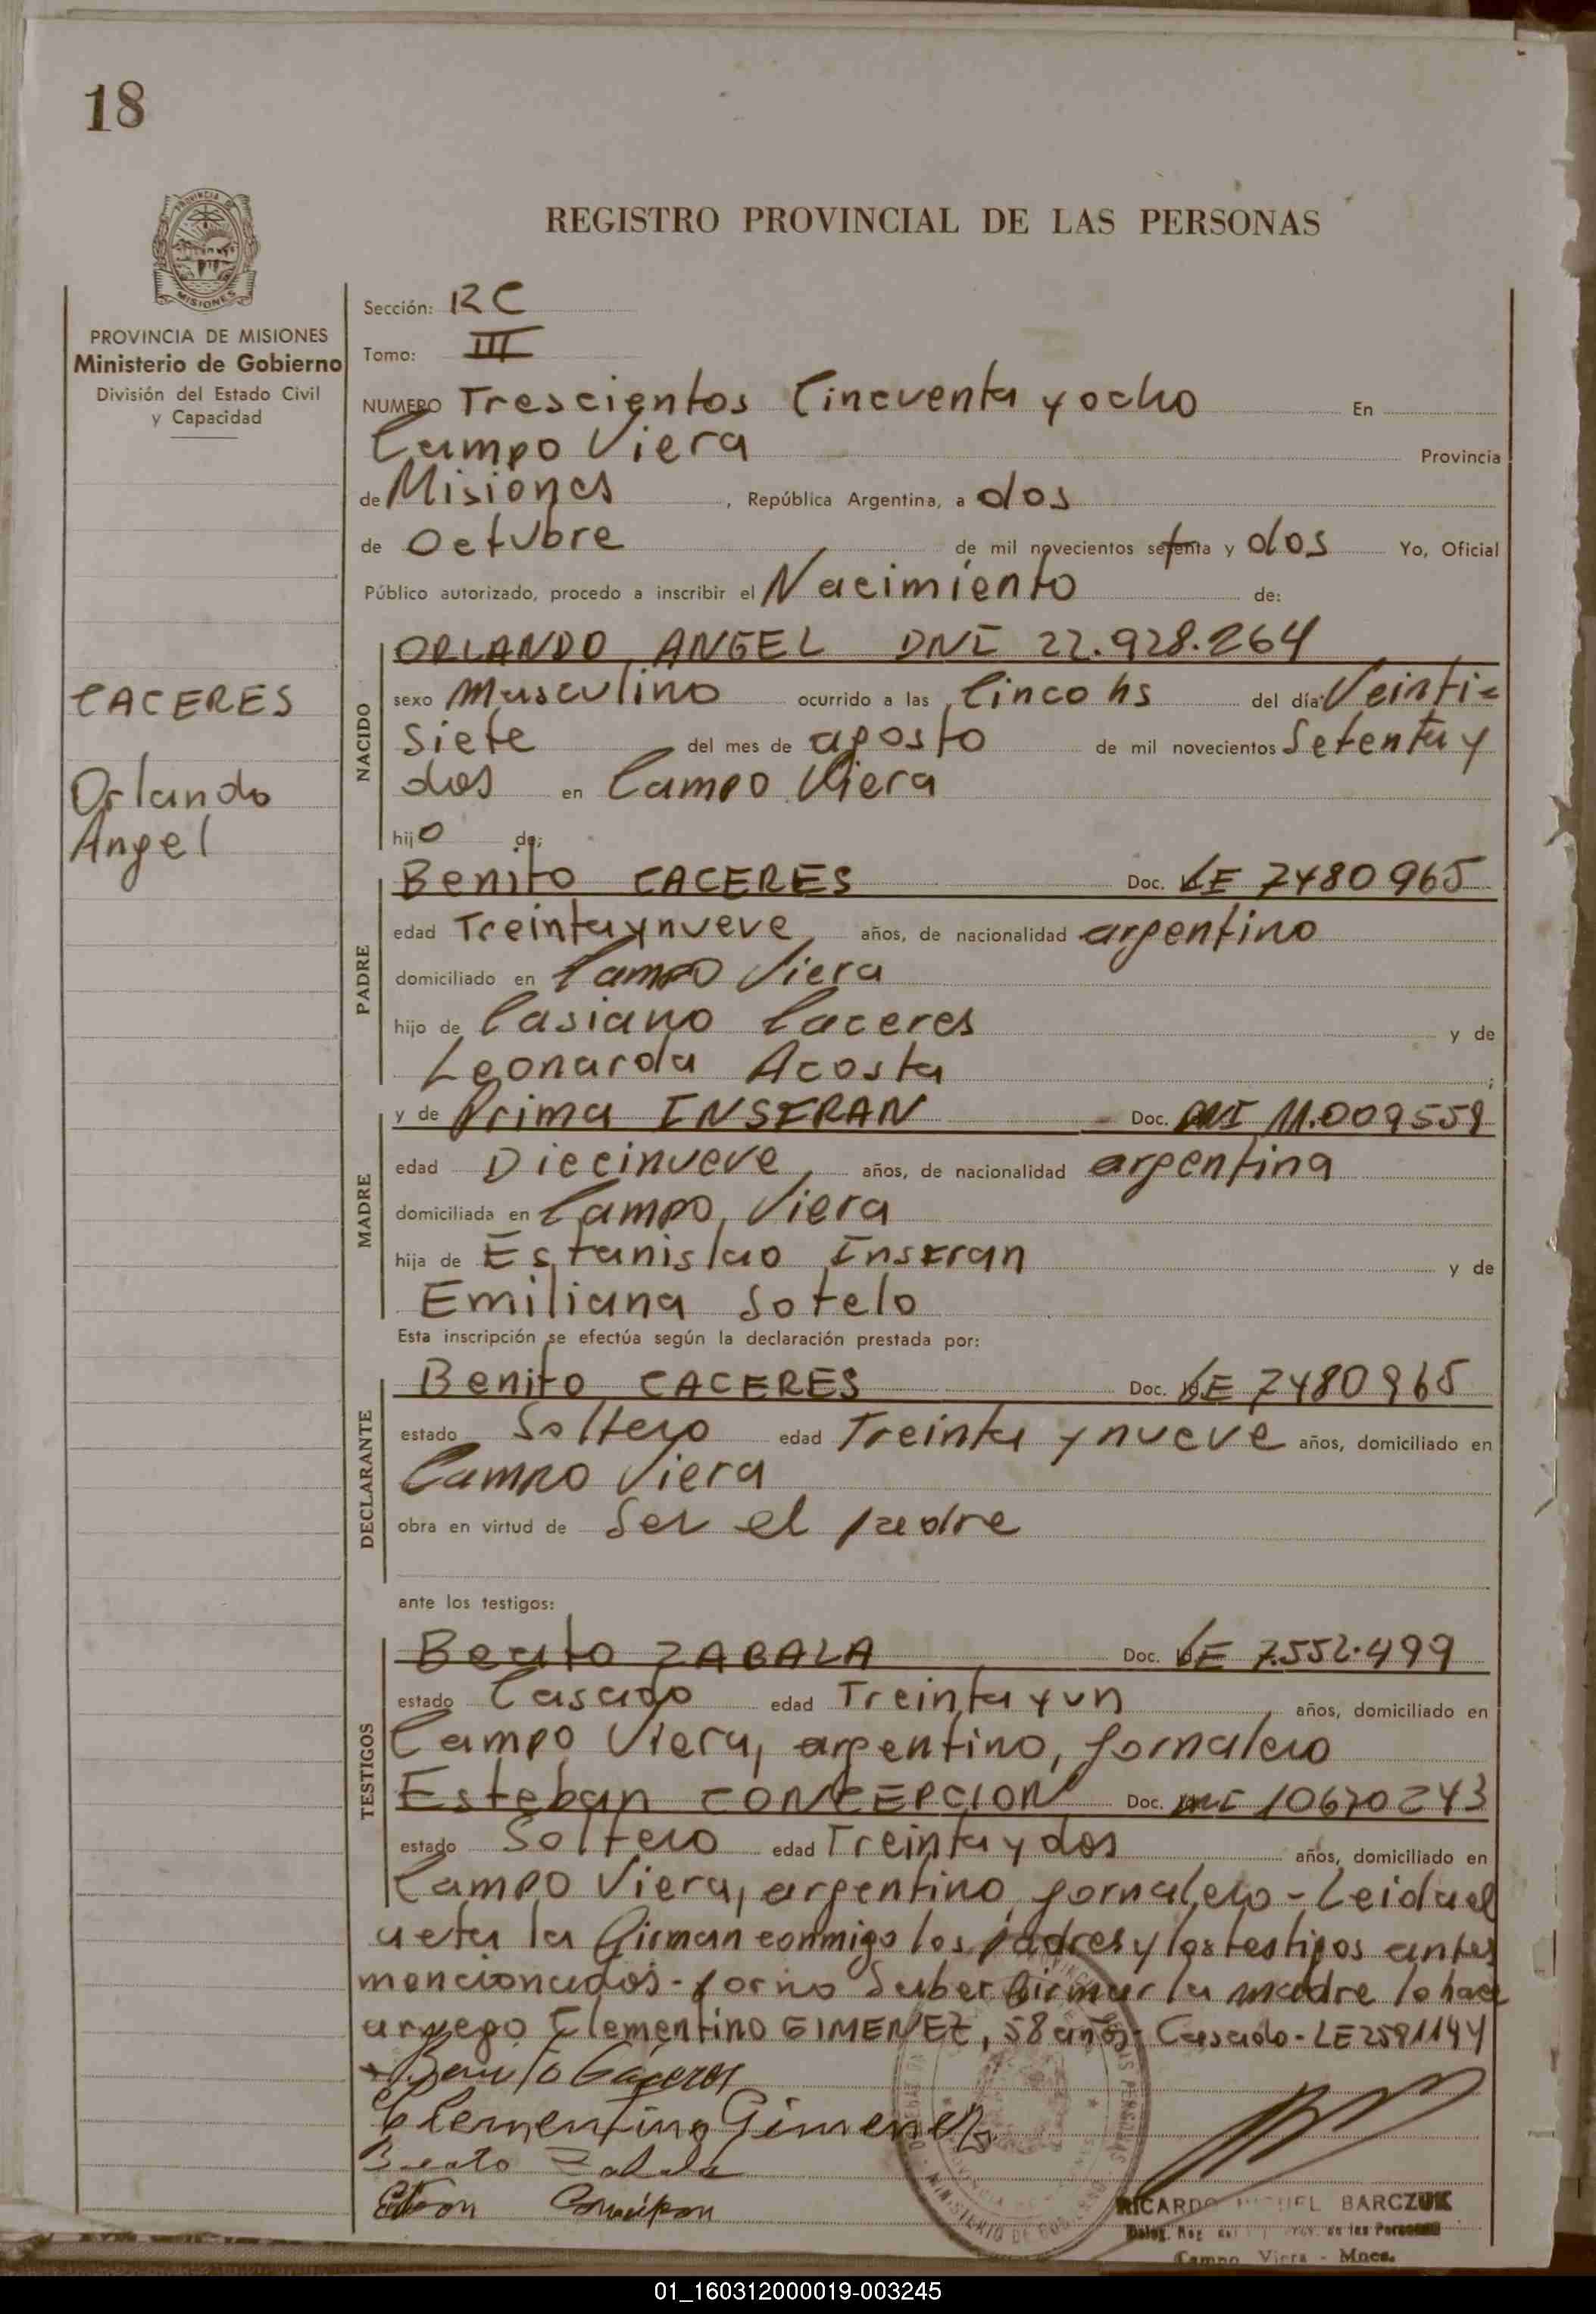 18
REGISTRO PROVINCIAL DE LAS PERSONAS
MISIONES
PROVINCIA DE MISIONES
Ministerio de Gobierno
División del Estado Civil
y Capacidad
CACERES
Orlando
Angel
Sección: RC
Tomo: III
NUMERO Trescientos Cincuenta y ocho En
Campo Viera Provincia
de Misiones, República Argentina, a dos
de Octubre de mil novecientos setenta y dos Yo, Oficial
Público autorizado, procedo a inscribir el Nacimiento de:
NACIDO
ORLANDO ANGEL DNI 22.928.264
sexo Masculino ocurrido a las Cinco hs del día Veinti=
siete del mes de agosto de mil novecientos Setenta y
dos en Campo Viera
hijo de:
PADRE
Benito CACERES Doc. LE 7480965
edad Treinta y nueve años, de nacionalidad argentino
domiciliado en Campo Viera
hijo de Casiano Caceres y de
Leonarda Acosta;
MADRE
y de Prima INSFRAN Doc. DNI 11.009559
edad Diecinueve, años, de nacionalidad argentina
domiciliada en Campo Viera
hija de Estanislao Insfran y de
Emiliana Sotelo
Esta inscripción se efectúa según la declaración prestada por:
DECLARANTE
Benito CACERES Doc. LE 7480965
estado Soltero edad Treinta y nueve años, domiciliado en
Campo Viera
obra en virtud de Ser el padre
ante los testigos:
TESTIGOS
Beato ZABALA Doc. LE 7.552.499
estado Casado edad Treinta y un años, domiciliado en
Campo Viera, argentino, jornalero
Esteban CONCEPCION Doc. 10670243
estado Soltero edad Treinta y dos años, domiciliado en
Campo Viera, argentino, jornalero - Leida el
acta la firman conmigo los padres y los testigos antes
mencionados - por no saber firmar la madre lo hace
a ruego Clementino GIMENEZ, 58 años - Casado - LE 2591144
Benito Caceres
Clementino Gimenez
Beato Zabala
Concepcion
RICARDO MIGUEL BARCZUK
de las Personas
Campo Viera - Mnes.
MINISTERIO DE GOBIERNO
01_160312000019-003245